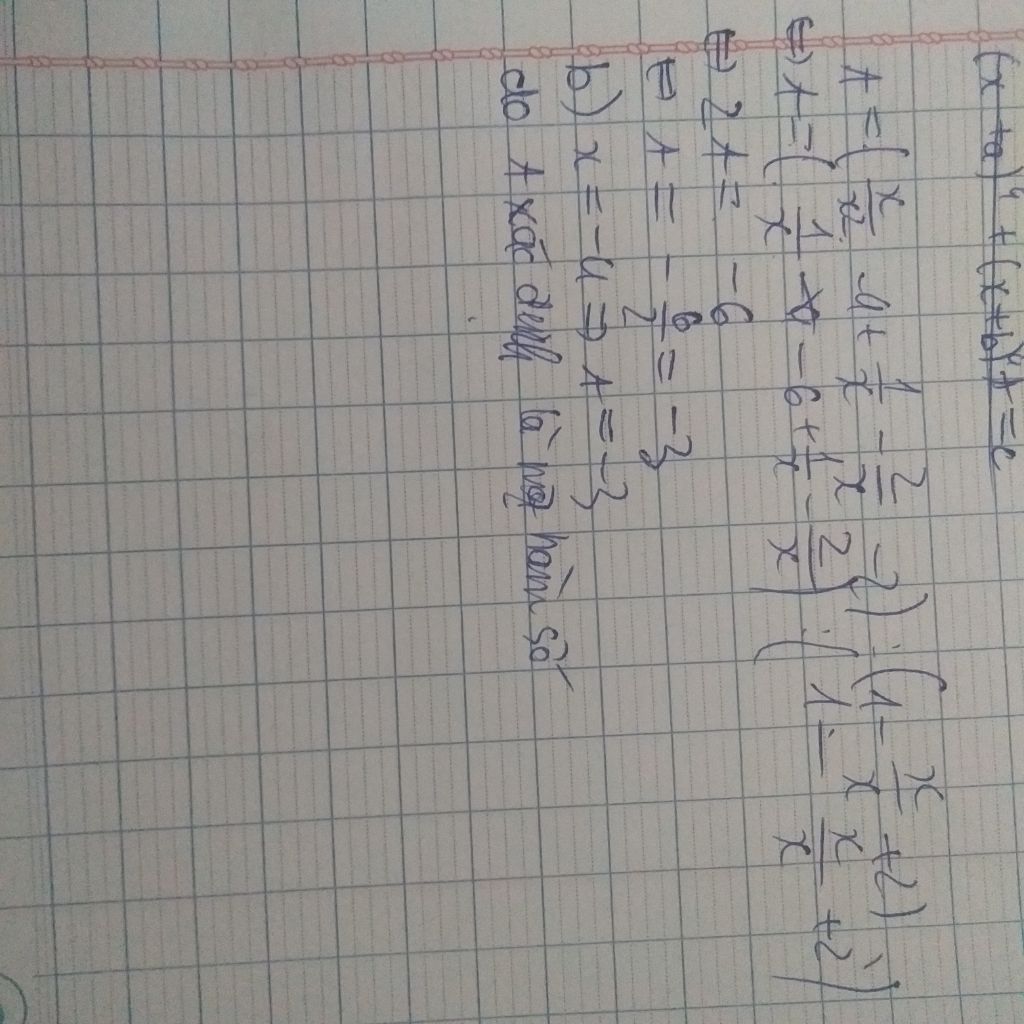 (x+a)⁴ + (x+b)⁴ A = c
A = (x/x² - 4 + 1/x - 2/x - 2) : (1 - x/x + 2)
⇔ A = (1/x - 6 + 1/x - 2/x) : (1 - x x/x + 2)
⇔ 2A = -6
⇔ A = -6/2 = -3
b) x = -4 ⇒ A = -3
do A xác định là hàm số